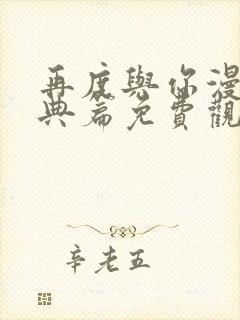 再度與你漫
典篇免費觀
辛老五